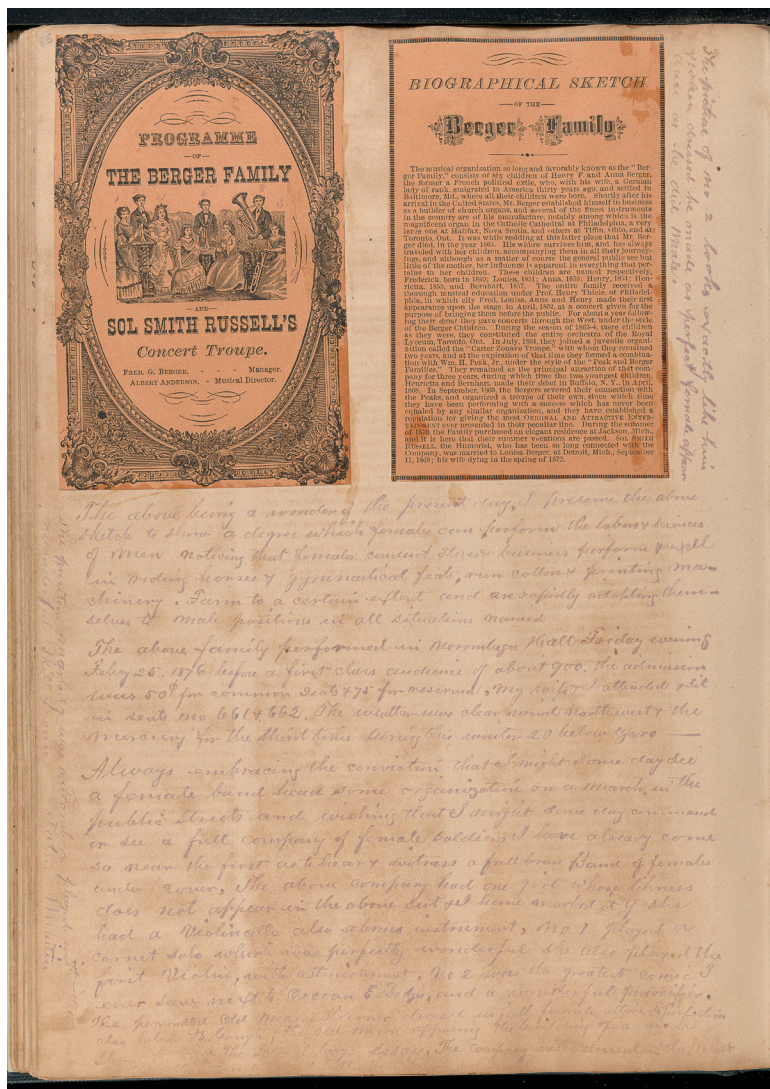 PROGRAMME
—OF—
THE BERGER FAMILY
—AND—
SOL SMITH RUSSELL'S
Concert Troupe.
FRED. G. BERGER, - - - - Manager.
ALBERT ANDERSON, - Musical Director.
BIOGRAPHICAL SKETCH
—OF THE—
Berger Family
The musical organization so long and favorably known as the "Ber-
ger Family," consists of six children of Henry F. and Anna Berger,
the former a French political exile, who, with his wife, a German
lady of rank, emigrated to America thirty years ago, and settled in
Baltimore, Md., where all their children were born. Shortly after his
arrival in the United States, Mr. Berger established himself in business
as a builder of church organs, and several of the finest instruments
in the country are of his manufacture, notably among which is the
magnificent organ in the Catholic Cathedral at Philadelphia, a very
large one at Halifax, Nova Scotia, and others at Tiffin, Ohio, and at
Toronto, Ont. It was while residing at this latter place that Mr. Ber-
ger died, in the year 1865. His widow survives him, and has always
traveled with her children, accompanying them in all their journey-
ings, and although as a matter of course the general public see but
little of the mother, her influence is apparent in everything that per-
tains to her children. These children are named respectively,
Frederick, born in 1849; Louisa, 1851; Anna, 1853; Henry, 1854; Hen-
rietta, 1855, and Bernhart, 1857. The entire family received a
thorough musical education under Prof. Henry Thiele, of Philadel-
phia, in which city Fred, Louisa, Anna and Henry made their first
appearance upon the stage, in April, 1862, at a concert given for the
purpose of bringing them before the public. For about a year follow-
ing their debut they gave concerts through the West, under the style
of the Berger Children. During the season of 1863-4, mere children
as they were, they constituted the entire orchestra of the Royal
Lyceum, Toronto, Ont. In July, 1864, they joined a juvenile organi-
zation called the "Carter Zouave Troupe," with whom they remained
two years, and at the expiration of that time they formed a combina-
tion with Wm. H. Peak, Jr., under the style of the "Peak and Berger
Families." They remained as the principal attraction of that com-
pany for three years, during which time the two youngest children,
Henrietta and Bernhart, made their debut in Buffalo, N. Y., in April,
1868. In September, 1869, the Bergers severed their connection with
the Peaks, and organized a troupe of their own, since which time
they have been performing with a success which has never been
equaled by any similar organization, and they have established a
reputation for giving the most ORIGINAL AND ATTRACTIVE ENTER-
TAINMENT ever presented in their peculiar line. During the summer
of 1870, the Family purchased an elegant residence at Jackson, Mich.,
and it is here that their summer vacations are passed. SOL SMITH
RUSSELL, the Humorist, who has been so long connected with the
Company, was married to Louisa Berger, at Detroit, Mich., September
11, 1869; his wife dying in the spring of 1872.
The picture of no 2 looks exactly like him
when dressed he made as perfect female appear
ance as he did Males,
The above being a wonder of the present day, I preserve the above
sketch to show a degree which females can perform the labors & sciences
of Men noticing that females conduct stores & business perform & excell
in riding horses & gymnastical feats, run cotton & printing ma-
chinery. Farm to a certain extent and are rapidly adopting them-
selves to male positions in all situations named
The above family performed in Norombega Hall Friday evening
Feby 25. 1876 before a first class audience of about 900. the admission
was 50¢ for common seats & 75 for reserved, My wife & I attended & sit
in seats no 661 & 662. The weather was clear wind northwest & the
Mercury for the third time during this winter 20 below zero —
Always embracing the conviction that I might some day see
a female band head some organization on a march in the
public Streets and wishing that I might some day command
or see a full company of female Soldiers I have already come
so near the first as to hear & witness a full brass Band of females
under cover, The above company had one girl whose likness
does not appear in the above cut & I have marked it 9 she
had a Violincello also a brass instrument, No 1 played a
cornet solo which was perfectly wonderful she also played the
first Violin, with astonishment, No 2 was the greatest comic I
ever saw next to Ossian E Dodge, and a wonderful personifier.